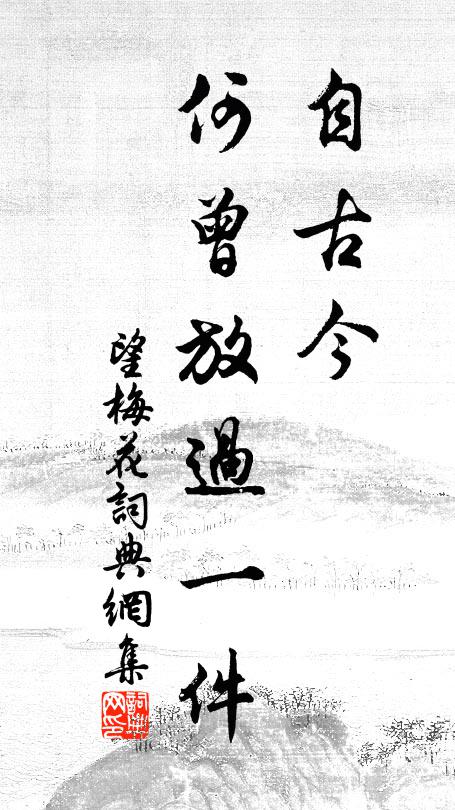 自古今
何曾放過一件
望梅花詞典網集